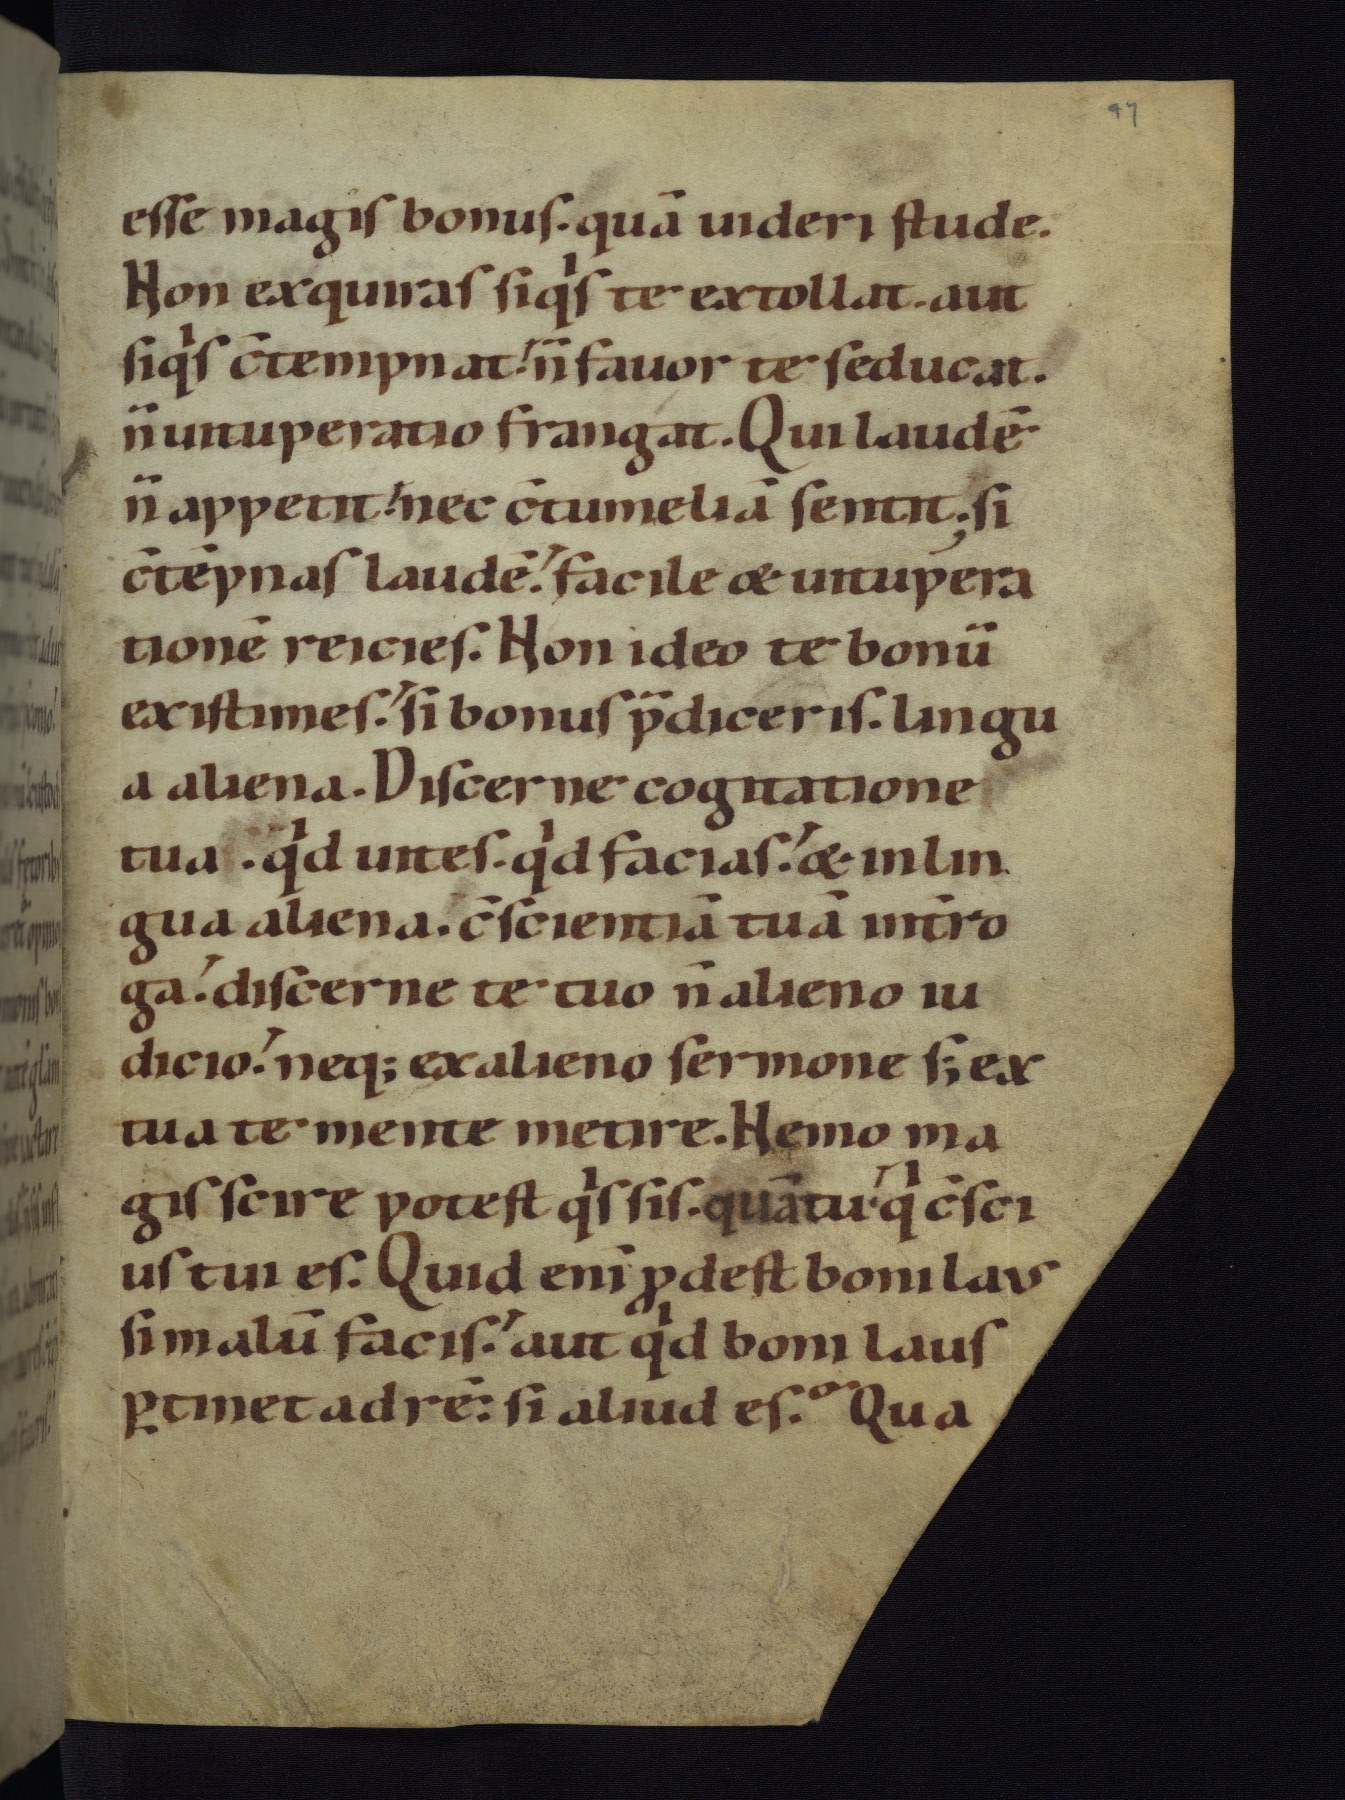 47
esse magis bonus. quā uideri stude.
Non exquiras siqͥs te extollat. aut
siqͥs c̄tempnat. n̄ fauor te seducat.
n̄ uituperatio frangat. Qui laudē
n̄ appetit. nec c̄tumeliā sentit; si
c̄tēpnas laudē. facile & uitupera
tionē reicies. Non ideo te bonū
existimes. si bonus p̄diceris. lingu
a aliena. Discerne cogitatione
tua. qͥd uites. qͥd facias. & in lin
gua aliena. c̄scientiā tuā int̄ro
ga. discerne te tuo n̄ alieno iu
dicio. neq; ex alieno sermone s; ex
tua te mente metire. Nemo ma
gis scire potest qͥs sis. quā tu. qͥ c̄sci
us tui es. Quid enī ꝓdest boni laus
si malū facis. aut qͥd boni laus
ꝑtinet ad rē: si aliud es. Qua